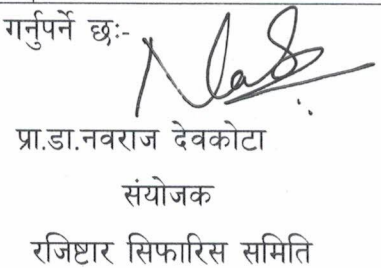 गर्नुपर्ने छः-
प्रा.डा.नवराज देवकोटा
संयोजक
रजिष्टार सिफारिस समिति